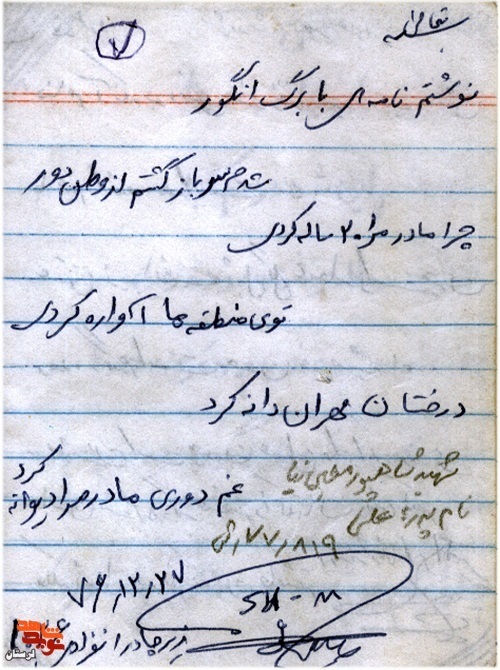 بسمه تعالی
۷
نوشتم نامه‌ای با برگ انگور
شدم سرباز گشتم از وطن دور
چرا مادر مرا ۲۰ ساله کردی
توی منطقه ها آواره کردی
درختان مهران دانه کرد
غم دوری مادر مرا دیوانه کرد
شهید شاهپور
نام پدر: علی
۷۷/۸۱۹
۶۶/۱۲/۲۷
لرستان